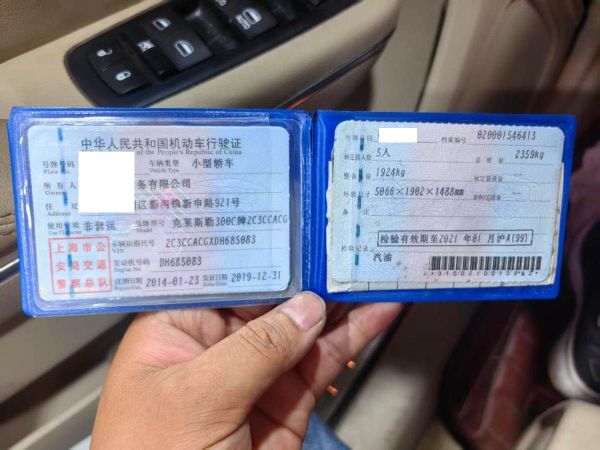 中华人民共和国机动车行驶证
of the People's Republic of China
号牌号码
车辆类型 小型轿车
Vehicle Type
所有人 务有限公司
Owner
住 区新河镇新申路921号
Address
使用性质 非营运 品牌型号 克莱斯勒300C牌2C3CCACG
Use Character Model
上海市公
安局交通
警察总队
车辆识别代号 2C3CCACGXDH685083
VIN
发动机号码 DH685083
Engine No.
注册日期 2014-01-23 发证日期 2019-12-31
Register Date Issue Date
号牌号码 档案编号 020001546413
核定载人数 5人 总质量 2359kg
整备质量 1924kg 核定载质量
外廓尺寸 5066×1902×1488mm 准牵引总质量
备注
检验有效期至2021年01月沪A(99)
检验记录
汽油